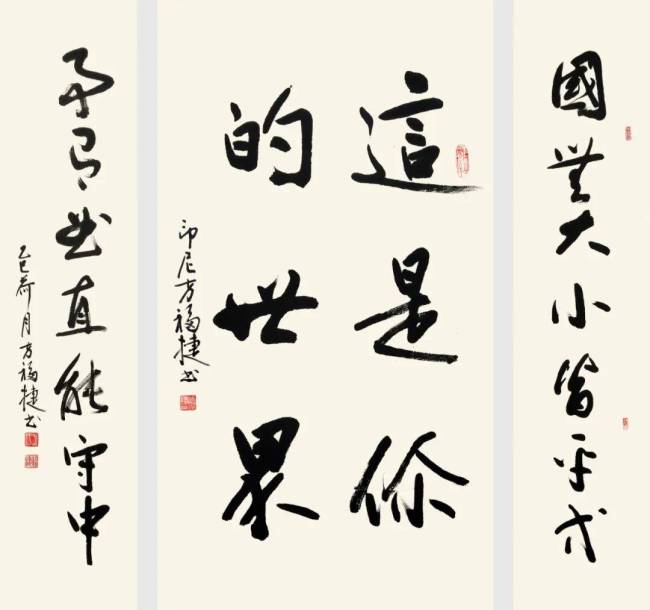 國無大小皆平等
這是你
的世界
印尼方福捷书
事有曲直能守中
乙巳荷月方福捷书